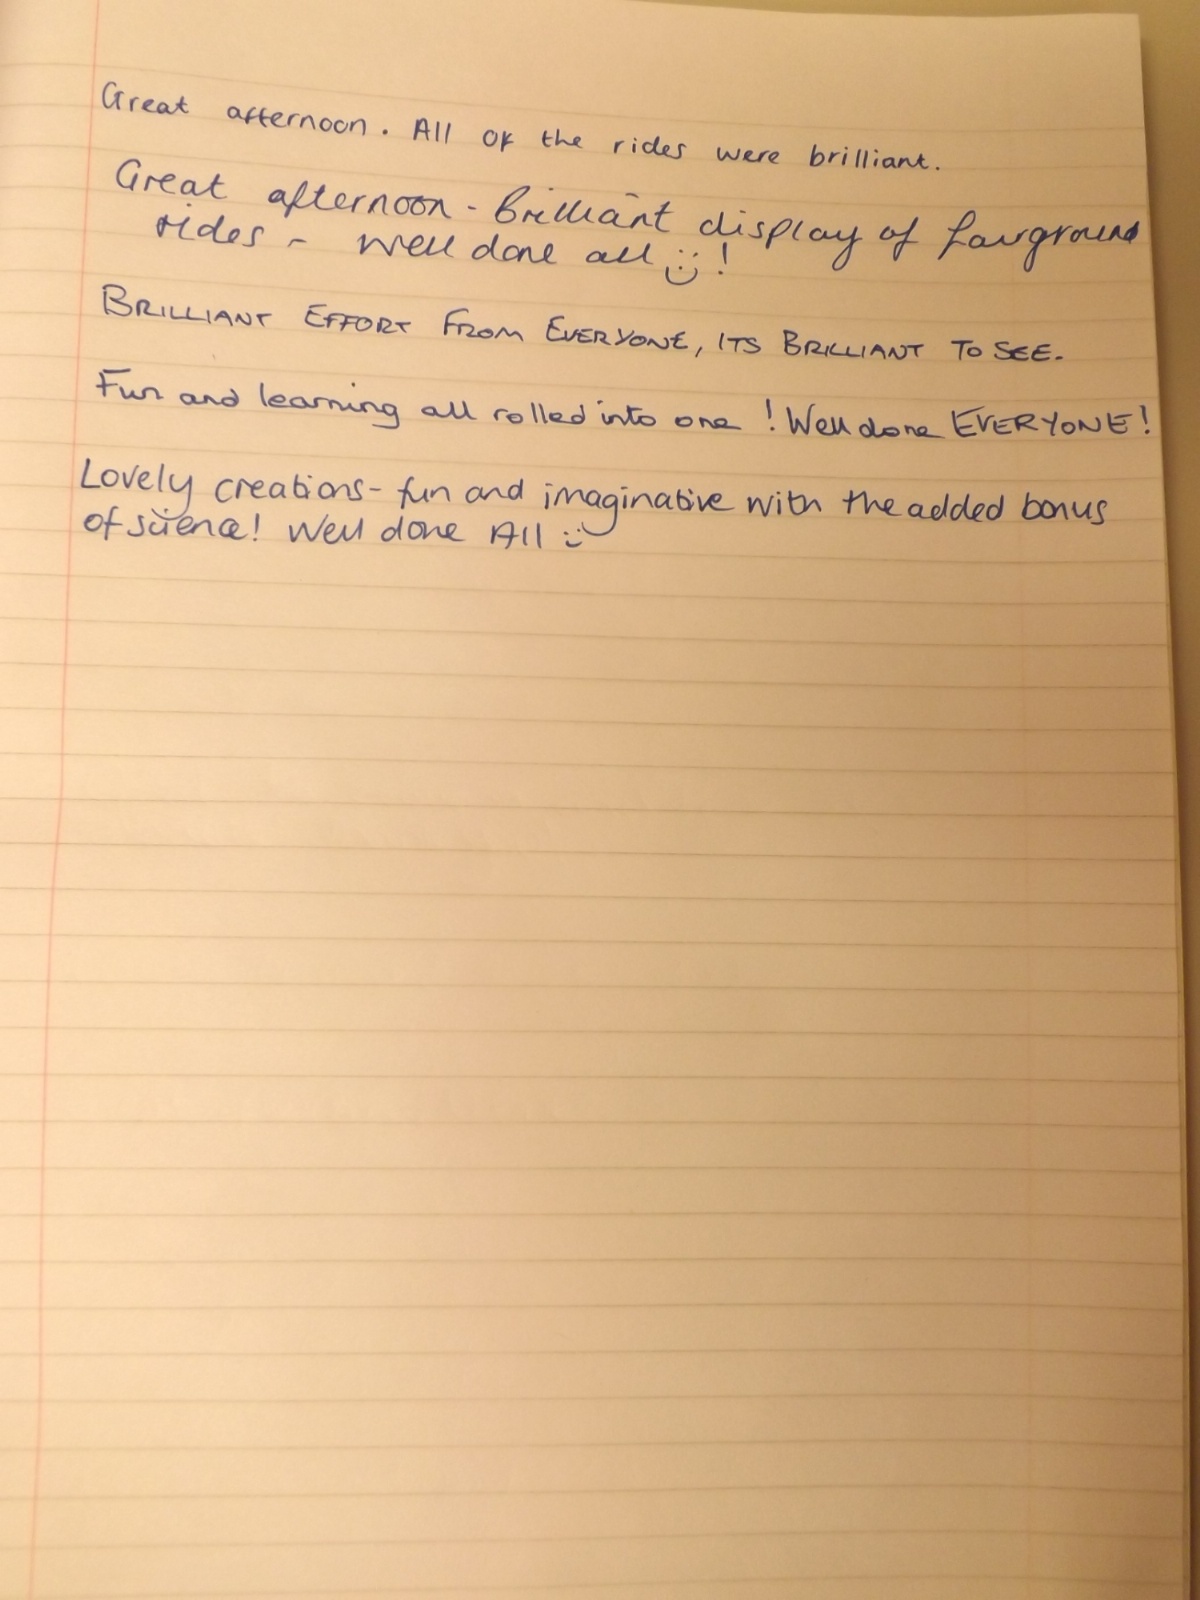 Great afternoon. All of the rides were brilliant.
Great afternoon - Brilliant display of fairground
rides - Well done all :)!
BRILLIANT EFFORT FROM EVERYONE, ITS BRILLIANT TO SEE.
Fun and learning all rolled into one! Well done EVERYONE!
Lovely creations - fun and imaginative with the added bonus
of science! Well done All :)